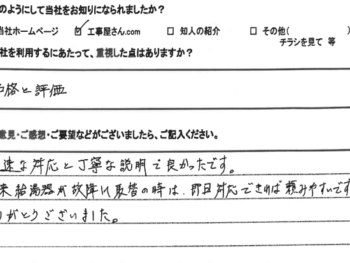 のようにして当社をお知りになられましたか？
当社ホームページ ☑ 工事屋さん.com □ 知人の紹介 □ その他(
チラシを見て 等
社を利用するにあたって、重視した点はありますか？
価格と評価
意見・ご感想・ご要望などがございましたら、ご記入ください。
速な対応と丁寧な説明で良かったです。
来給湯器が故障し 時は、即日対応できれば頼みやすいです
りがとうございました。